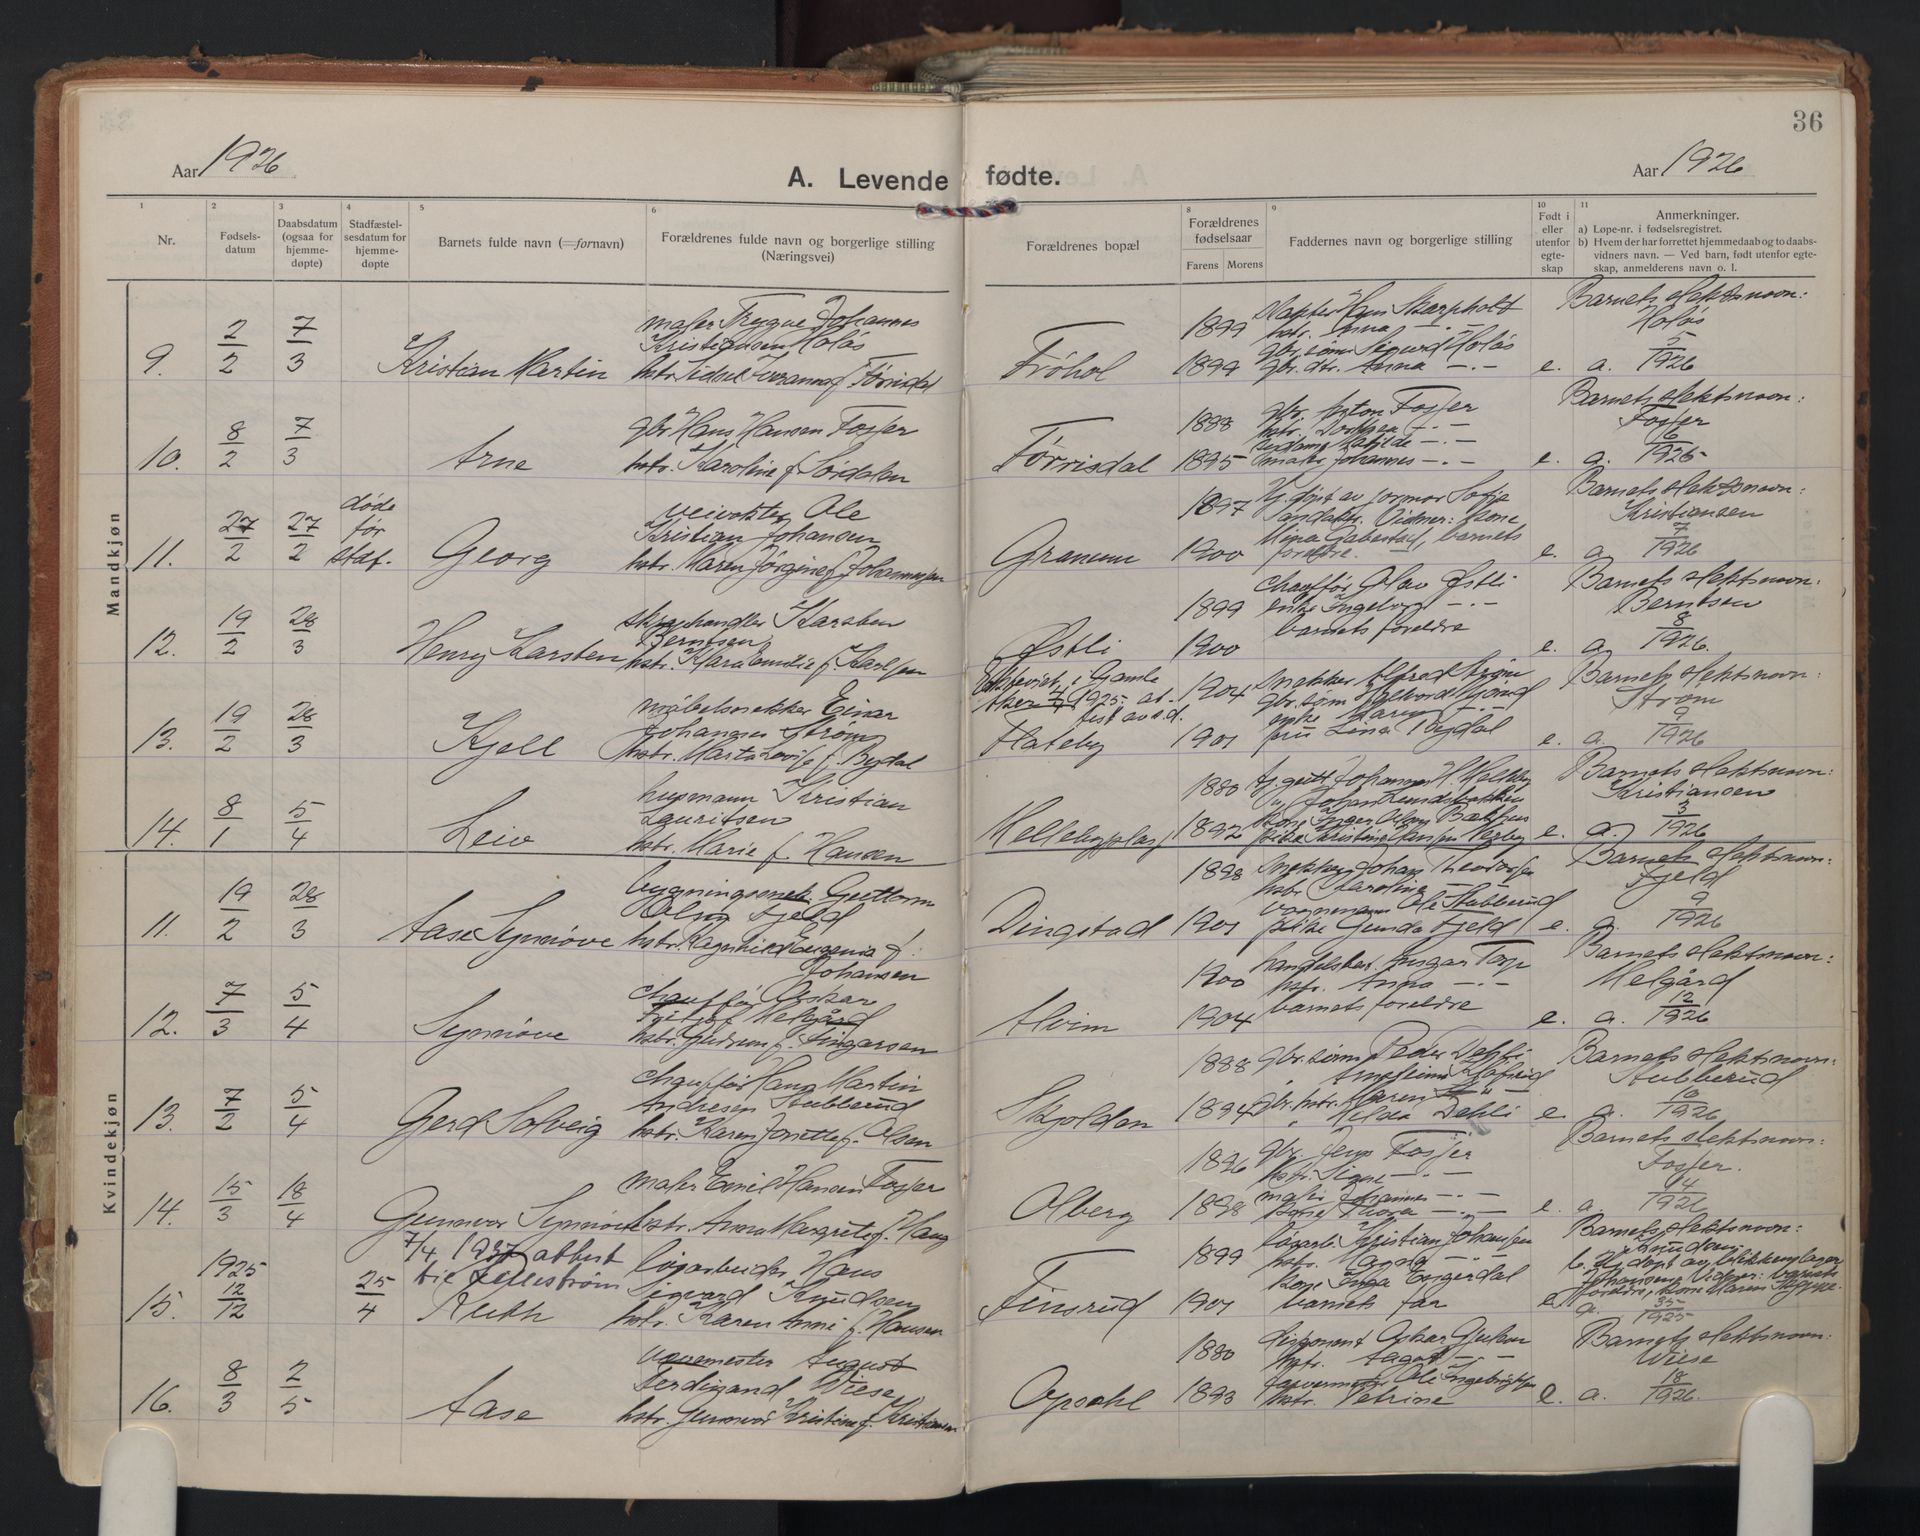 36
Aar 1926
A. Levende fødte.
Aar 1926
1 2 3 4 5 6 8 9 10 11
Nr.
Fødsels-
datum
Daabsdatum
(ogsaa for
hjemme-
døpte)
Stadfæstel-
sesdatum for
hjemme-
døpte
Barnets fulde navn (=fornavn)
Forældrenes fulde navn og borgerlige stilling
(Næringsvei)
Forældrenes bopæl
Forældrenes
fødselsaar
Farens Morens
Faddernes navn og borgerlige stilling
Født i
eller
utenfor
egte-
skap
Anmerkninger.
a) Løpe-nr. i fødselsregistret.
b) Hvem der har forrettet hjemmedaab og to daabs-
vidners navn. — Ved barn, født utenfor egte-
skap, anmelderens navn o. l.
Mandkjøn
9. 2/2 7/3 Kristian Martin
maler Trygve Johannes
Kristiansen Holås
hstr.
Frøhol
1899
1899
Hans Skarpholt
hstr. Anna —
gbr. søn Sigurd Holås
gbr. dtr. Anna —.—
e.
Barnets slektsnavn:
Holås
a. 5/1926
10. 8/2 7/3 Arne
gbr. Hans Hansen Fosser
hstr. Karoline f. Sørdalen
Tørrisdal
1888
1895
gbr. Anton Fosser
hstr. —.—
Matilde —.—
maler Johannes —.—
e.
Barnets slektsnavn:
Fosser
a. 6/1926
11. 27/2 27/2 døde
før
staf.
Georg
veivokter Ole
Kristian Johansen
hstr. Maren Jørgine f. Johannessen
Granum
1897
1900
Hj. døpt av jormor Sofie
Vidner: kone
barnets
foreldre.
e.
Barnets slektsnavn:
Kristiansen
a. 7/1926
12. 19/2 28/3 Henry Karsten
Karsten
Berntsen
hstr. Kara Emilie f. Karlsen
Østli
1899
1900
chauffør Olav Østli
enke Ingeborg —.—
barnets foreldre
e.
Barnets slektsnavn:
Berntsen
a. 8/1926.
13. 19/2 28/3 Kjell
møbelsnekker Einar
Johannes Strøm
hstr. Marta Lovise f. Bydal
i Gamle
Aker 1925. at-
test av s.d.
Flateby
1904
1901
snekker Alfred
gbr. søn
enke Karen —.—
fru Lina Bydal
e.
Barnets slektsnavn:
Strøm
a. 9/1926
14. 8/1 5/4 Leiv
husmann Kristian
Lauritsen
hstr. Marie f. Hansen
Hellebyplas
1880
1892
e.
Barnets slektsnavn:
Kristiansen
a. 3/1926
Kvindekjøn
11. 19/2 28/3 Aase Synnøve
bygningssnek. Guttorm
Olsen Fjeld
hstr. Ragnhild Eugenia f.
Johansen
Dingstad
1898
1901
snekker Johan
hstr. Karoline —
vognmann Ole Stubberud
pike Gunda Fjeld
e.
Barnets slektsnavn:
Fjeld
a. 9/1926
12. 7/3 5/4 Synnøve
chauffør Oskar
Fritjof Melgård
hstr. Gudrun f. Aingarsen
Alvim
1900
1904
handelsbest. Ansgar Torp
hstr. Anna —.—
barnets foreldre
e.
Barnets slektsnavn:
Melgård
a. 12/1926
13. 7/2 5/4 Gerd Solveig
chauffør Hans Martin
Andresen Stubberud
hstr. Karen Josette f. Olsen
Skjolden
1888
1894
gbr. sønn Peder Dehli
gbr. hstr. Maren
" Hilda Dehli
e.
Barnets slektsnavn:
Stubberud
a. 10/1926
14. 15/3 18/4 Gunnvor Synnøve
maler Emil Hansen Fosser
hstr. Anna Margrete f. Haug
Olberg
1896
1898
gbr. Jens Fosser
hstr. Signe —.—
maler Johannes —.—
kone Thora —.—
e.
Barnets slektsnavn:
Fosser.
a. 14/1926
15. 1925 12/12 25/4
7/4 1937 attest
Ruth
løsarbeider Hans
Sigvard Knudsen
hstr. Karen Anne f. Hansen
Finsrud
1899
1901
løsarb. Kristian Johansen
hstr. Magda —
kone Inga Engerdal
barnets far
e
Barnets slektsnavn:
Knudsen
b. Hj. døpt av blikkenslager
Johansen. Vidner: barnets
foreldre, kone Maren
a. 35/1925
16. 8/3 2/5 Aase
August
Ferdinand Wiese
hstr. Gunnvor Kristine f. Kristiansen
Opsahl
1880
1893
disponent Oskar
hstr. Aagot —.—
Ole Ingebrigtsen
hstr. Petrine —
e.
Barnets slektsnavn:
Wiese
a. 18/1926.